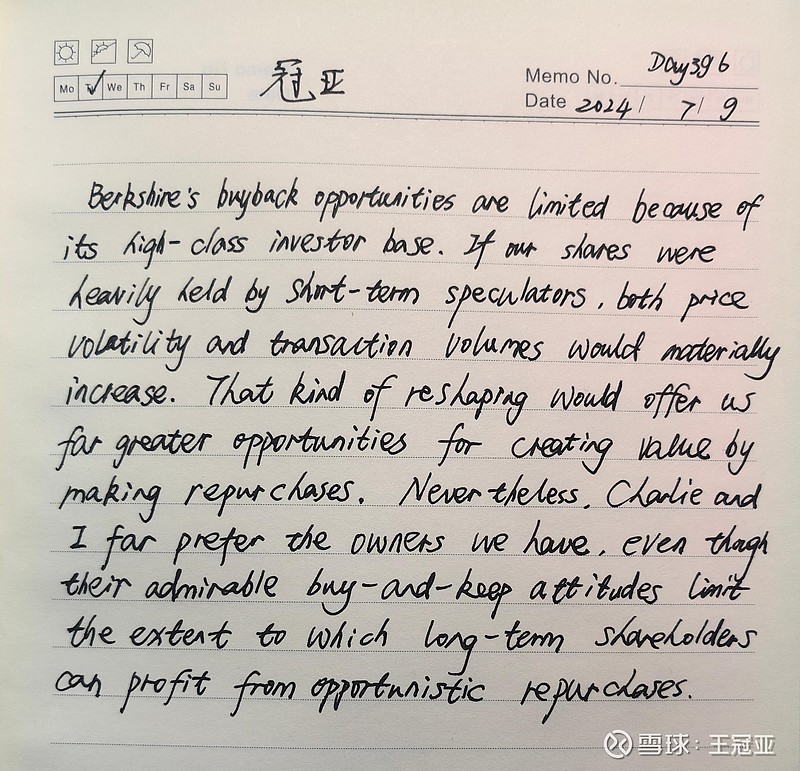 Mo Tu We Th Fr Sa Su
冠亚
Memo No. Day396
Date 2024 / 7 / 9
Berkshire's buyback opportunities are limited because of
its high-class investor base. If our shares were
heavily held by short-term speculators, both price
volatility and transaction volumes would materially
increase. That kind of reshaping would offer us
far greater opportunities for creating value by
making repurchases. Nevertheless, Charlie and
I far prefer the owners we have, even though
their admirable buy-and-keep attitudes limit
the extent to which long-term shareholders
can profit from opportunistic repurchases.
雪球:王冠亚